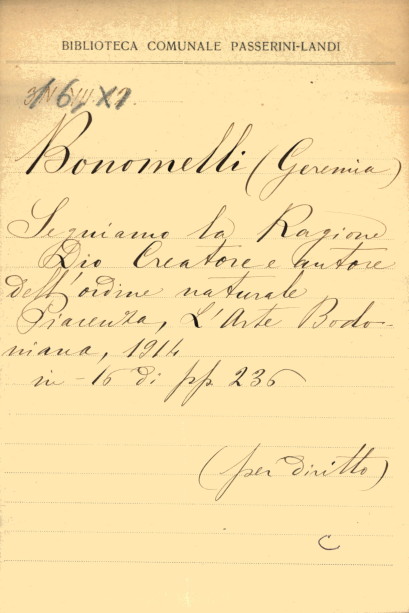 BIBLIOTECA COMUNALE PASSERINI-LANDI
Bonomelli (Geremia)
Seguiamo la Ragione
Dio Creatore e autore
dell'ordine naturale
Piacenza, L'Arte Bodo-
niana, 1914
in-16 di pp 236
(per diritto)
C